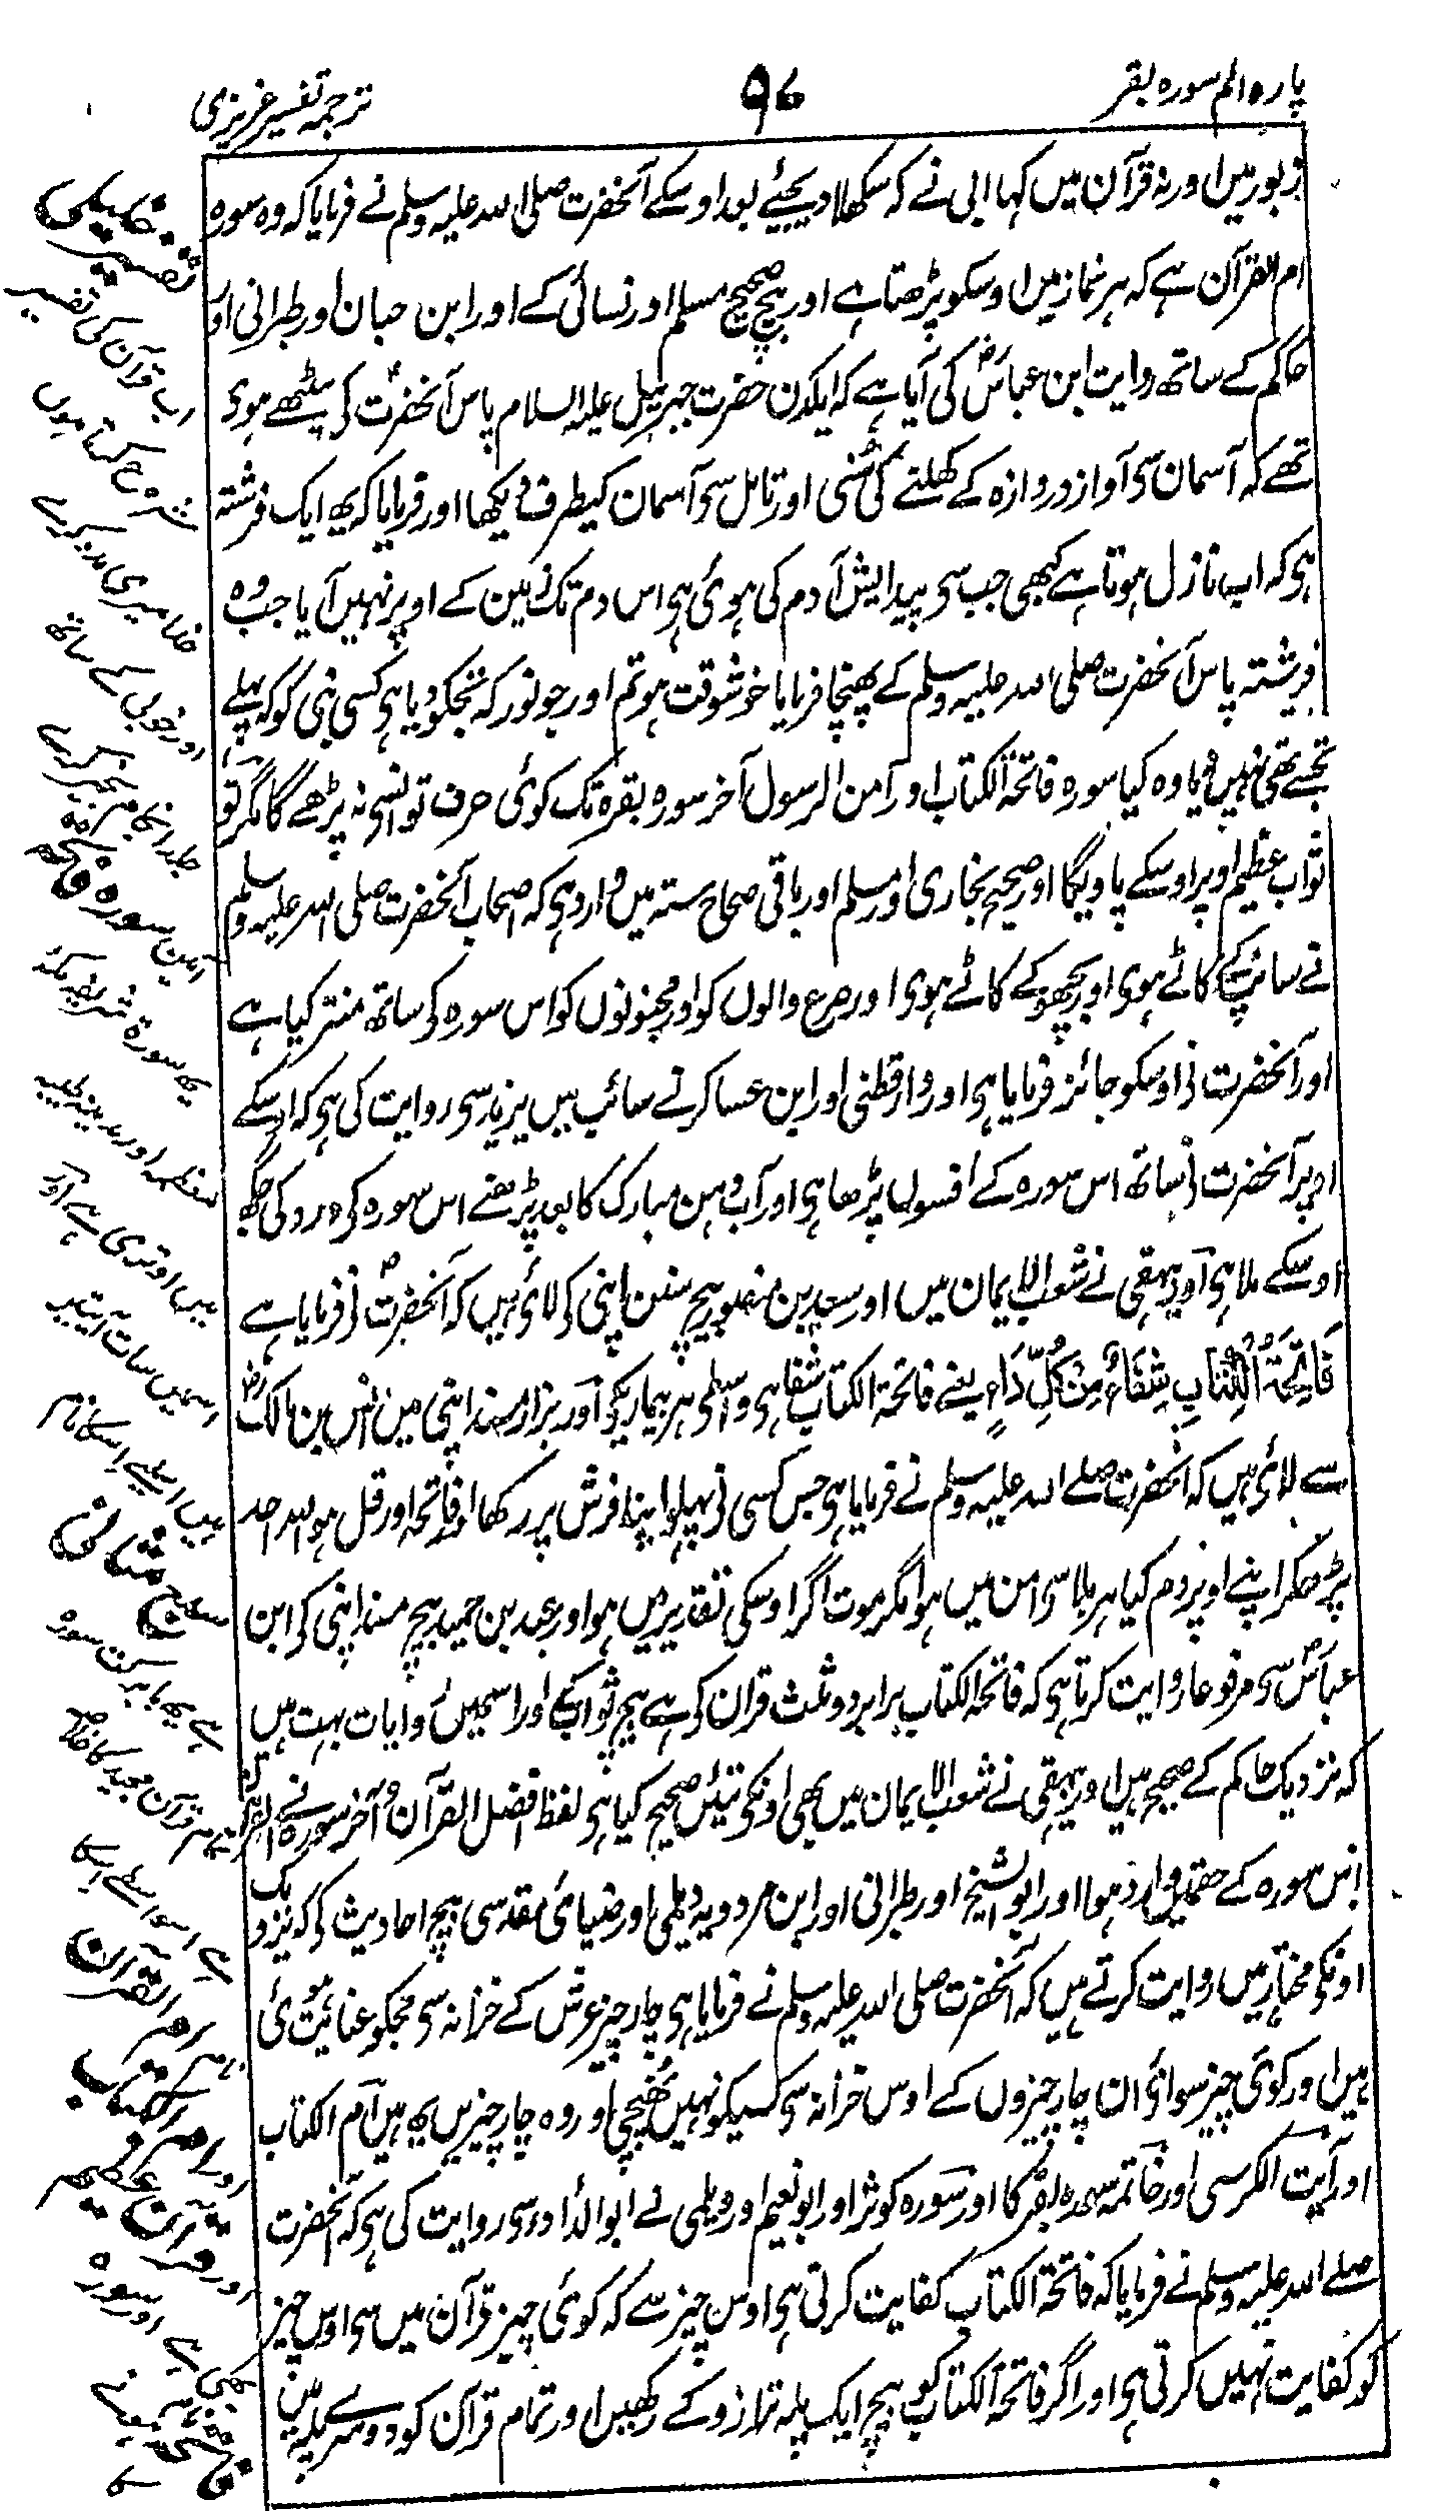 پارہ الم سورہ بقر
۹۶
ترجمہ تفسیر عزیزی
زبور میں اور نہ قرآن میں کہا ابی نے کہ سکھلا دیجئے بعد اوسکے آنحضرت صلی اللہ علیہ وسلم نے فرمایا کہ وہ سورہ
ام القرآن ہے کہ ہر نماز میں اوسکو پڑھتا ہے اور بیچ صحیح مسلم اور نسائی کے اور ابن حبان اور طبرانی اور
حاکم کے ساتھ روایت ابن عباسؓ کی آیا ہے کہ ایکدن حضرت جبرئیل علیہ السلام پاس آنحضرتؐ کی بیٹھے ہوی
تھے کہ آسمان سی آواز دروازہ کے کھلنے کی سُنی اور تامل سی آسمان کیطرف دیکھا اور فرمایا کہ یہ ایک فرشتہ
ہی کہ اب نازل ہوتا ہے کبھی جب سی پیدایش آدم کی ہوئی ہی اس دم تک زمین کے اوپر نہیں آیا جب وہ
فرشتہ پاس آنحضرت صلی اللہ علیہ وسلم کے پھنچا فرمایا خوشوقت ہو تم اور جو نور کہ تجکو دیا ہی کسی نبی کو کہ پہلے
تجہے تھی نہیں دیا وہ کیا سورہ فاتحۃ الکتاب اور آمن الرسول آخر سورہ بقرہ تک کوئی حرف تو اسی نہ پڑھے گا مگر تو
ثواب عظیم اوپر اوسکے پاویگا اور صحیح بخاری اور مسلم اور باقی صحاح ستہ میں وارد ہی کہ اصحاب آنحضرت صلی اللہ علیہ وسلم
نے سانپ کے کاٹے ہوی اور بچھو کے کاٹے ہوی اور صرع والوں کو اور مجنونوں کو اس سورہ کی ساتھ منتر کیا ہے
اور آنحضرت نی اوسکو جائز فرمایا ہی اور دارقطنی اور ابن عساکر نے سائب بن یزید سی روایت کی ہی کہ اوسکے
اوپر آنحضرت نی ساتھ اس سورہ کے افسون پڑھا ہی اور آب دہن مبارک کا بعد پڑھنے اس سورہ کی درد کی جگہ
اوسکے ملا ہی آور بیہقی نے شعب الایمان میں اور سعید بن منصور بیچ سنن اپنی کی لائی ہیں کہ آنحضرتؐ نی فرمایا ہے
فَاتِحَۃُ الْکِتَابِ شِفَاءٌ مِنْ کُلِّ دَاءٍ یعنے فاتحۃ الکتاب شفا ہی واسطی ہر بیماریکی آور بزار مسند اپنی میں انس بن مالکؓ
سے لائی ہیں کہ آنحضرت صلے اللہ علیہ وسلم نے فرمایا ہی جس کسی نی پہلو اپنا فرش پر رکھا اور فاتحہ اور قل ہو اللہ احد
پڑھکر اپنے اوپر دم کیا ہر بلا سی امن میں ہوا مگر موت اگر اوسکی تقدیر میں ہو اور عبد بن حمید بیچ مسند اپنی کی ابن
عباسؓ سی مرفوعا روایت کرتا ہی کہ فاتحۃ الکتاب برابر دو ثلث قران کی ہے بیچ ثواب کے اور اسمیں روایات بہت ہیں
کہ نزدیک حاکم کے صحیح ہیں اور بیہقی نے شعب الایمان میں بھی اونکی تئیں صحیح کیا ہی لفظ افضل القرآن و آخر سورہ نے القران
اس سورہ کے حقمیں وارد ہوا اور ابو الشیخ اور طبرانی اور ابن مردویہ دیلمی اور ضیائی مقدسی بیچ احادیث کی کہ نزدیک
اونکی مختار ہیں روایت کرتے ہیں کہ آنحضرت صلی اللہ علیہ وسلم نے فرمایا ہی چار چیز عرش کے خزانہ سی مجکو عنایت ہوئی
ہیں اور کوئی چیز سوائی ان چار چیزوں کے اوس خزانہ سی کسیکو نہیں پھنچی اور وہ چار چیزیں یہ ہیں اُم الکتاب
اور آیت الکرسی اور خاتمہ سورہ بقر کا اور سورہ کوثر اور ابو نعیم اور دیلمی نے ابو الدرداء سی روایت کی ہی کہ آنحضرت
صلے اللہ علیہ وسلم نے فرمایا کہ فاتحۃ الکتاب کفایت کرتی ہی اوس چیز سے کہ کوئی چیز قرآن میں سی اوس چیز
کو کفایت نہیں کرتی ہی اور اگر فاتحۃ الکتاب کو بیچ ایک پلہ ترازو کے رکھیں اور تمام قرآن کو دوسرے پلہ میں
رب قرآن کی تفسیر
شروع کرتا ہوں
خدا میری مدد کرے
اور خوبی کے ساتھ
جلد انجام بخیر کرے
آمین سورہ فاتحہ
یہ سورۃ شریفہ مکہ
معظمہ اور مدینہ طیبہ
میں اوتری ہے اور
اسمیں سات آیتیں
ہیں اسلیے اسکا نام
سبع مثانی
ہے
قرآن مجید کا خلاصہ
ہے اسواسطے اسکا
نام ام القرآن